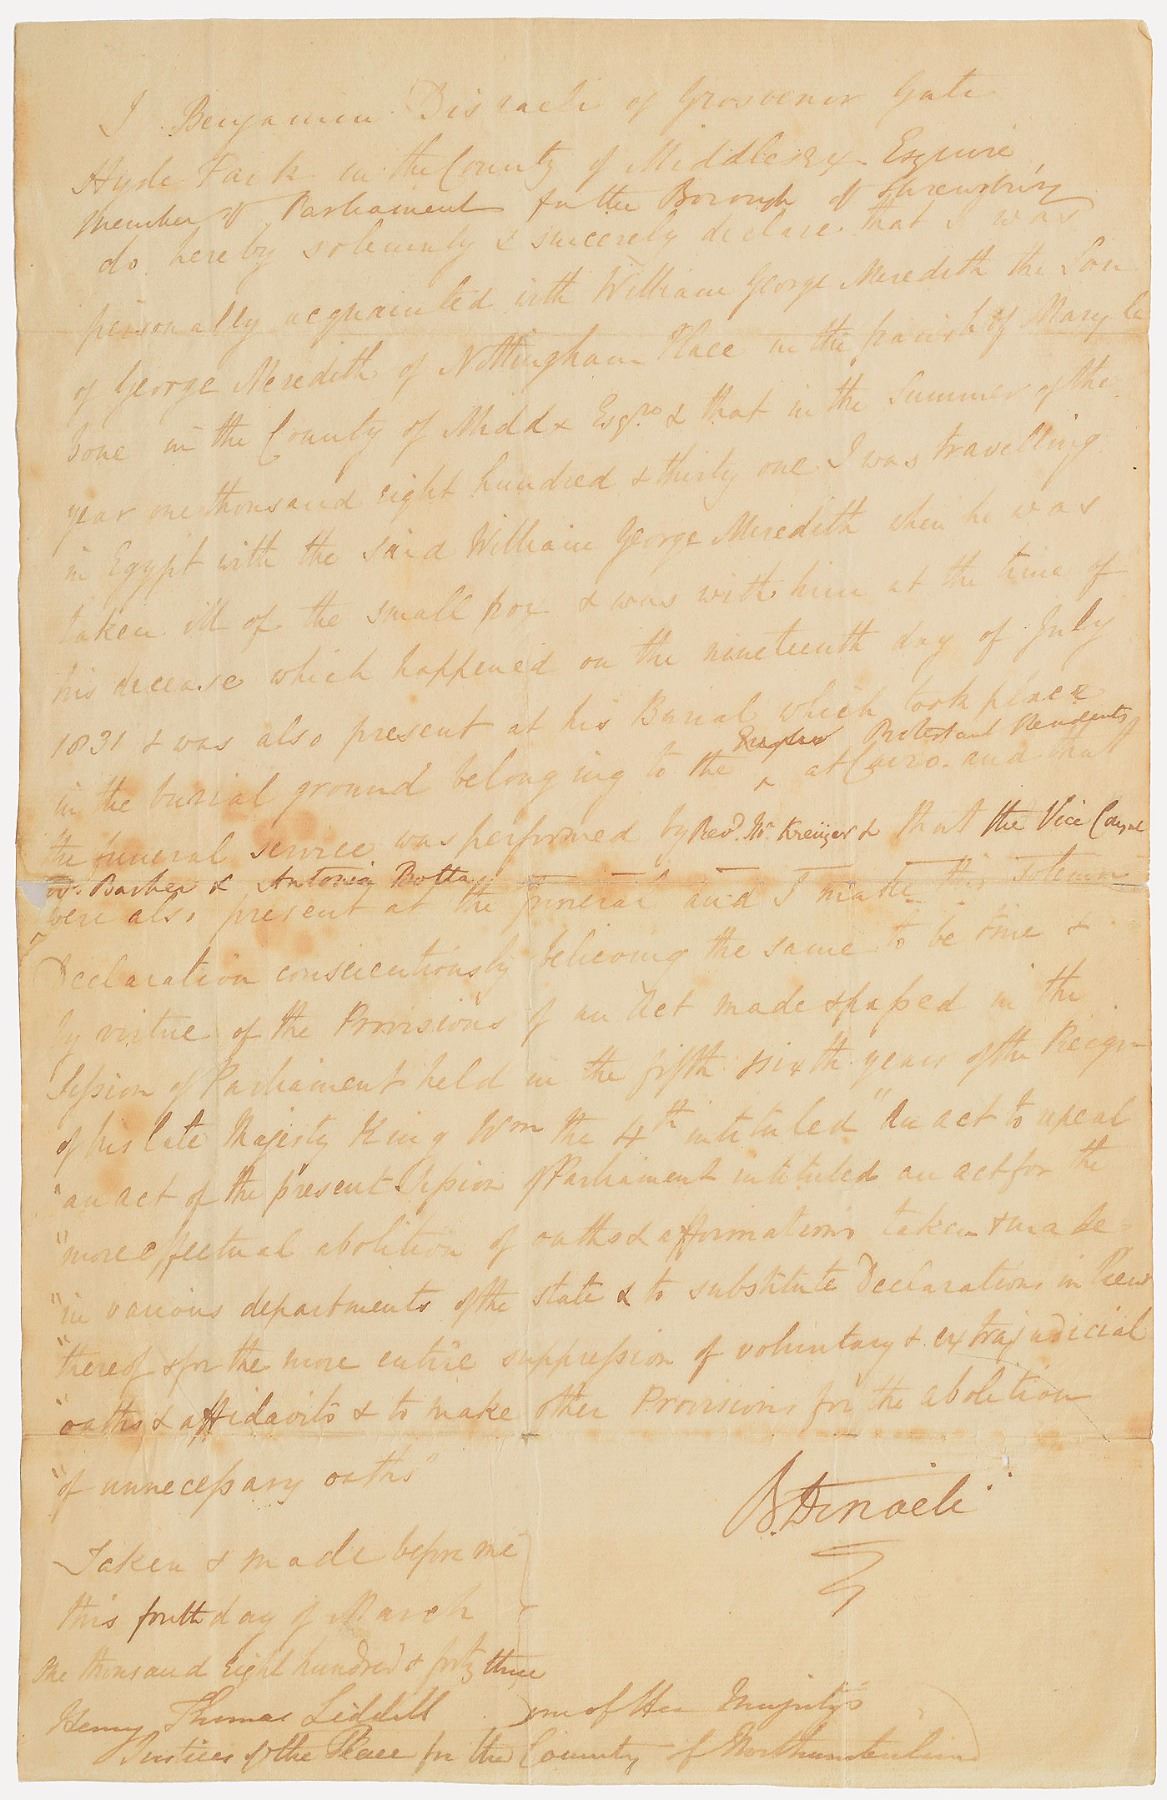 I Benjamin Disraeli of Grosvenor Gate
Hyde Park in the County of Middlesex Esquire
Member of Parliament for the Borough of Shrewsbury
do hereby solemnly & sincerely declare that I was
personally acquainted with William George Meredith the Son
of George Meredith of Nottingham Place in the parish of Mary le
bone in the County of Middx Esqre & that in the Summer of the
year one thousand eight hundred & thirty one I was travelling
in Egypt with the said William George Meredith when he was
taken ill of the small pox & was with him at the time of
his decease which happened on the nineteenth day of July
1831 & was also present at his Burial which took place
Protestant Residents
in the burial ground belonging to the ^ at Cairo and that
the funeral service was performed by Revd. Mr. Kreüzer & that the Vice Consul
Mr. Barker & Antonio Botta
were also present at the funeral and I make this solemn
Declaration conscientiously believing the same to be true &
by virtue of the Provisions of an Act made & passed in the
Session of Parliament held in the fifth & sixth years of the Reign
of his late Majesty King Wm the 4th intituled "An act to repeal
"an act of the present Session of Parliament intituled an act for the
"more effectual abolition of oaths & affirmations taken & made
"in various departments of the state & to substitute Declarations in lieu
"thereof & for the more entire suppression of voluntary & extrajudicial
"oaths & affidavits & to make other Provisions for the abolition
"of unnecessary oaths"
B. Disraeli
Taken & made before me
this fourth day of March
One thousand Eight hundred & forty three
Henry Thomas Liddell one of Her Majesty's
Justices of the Peace for the County of Northumberland